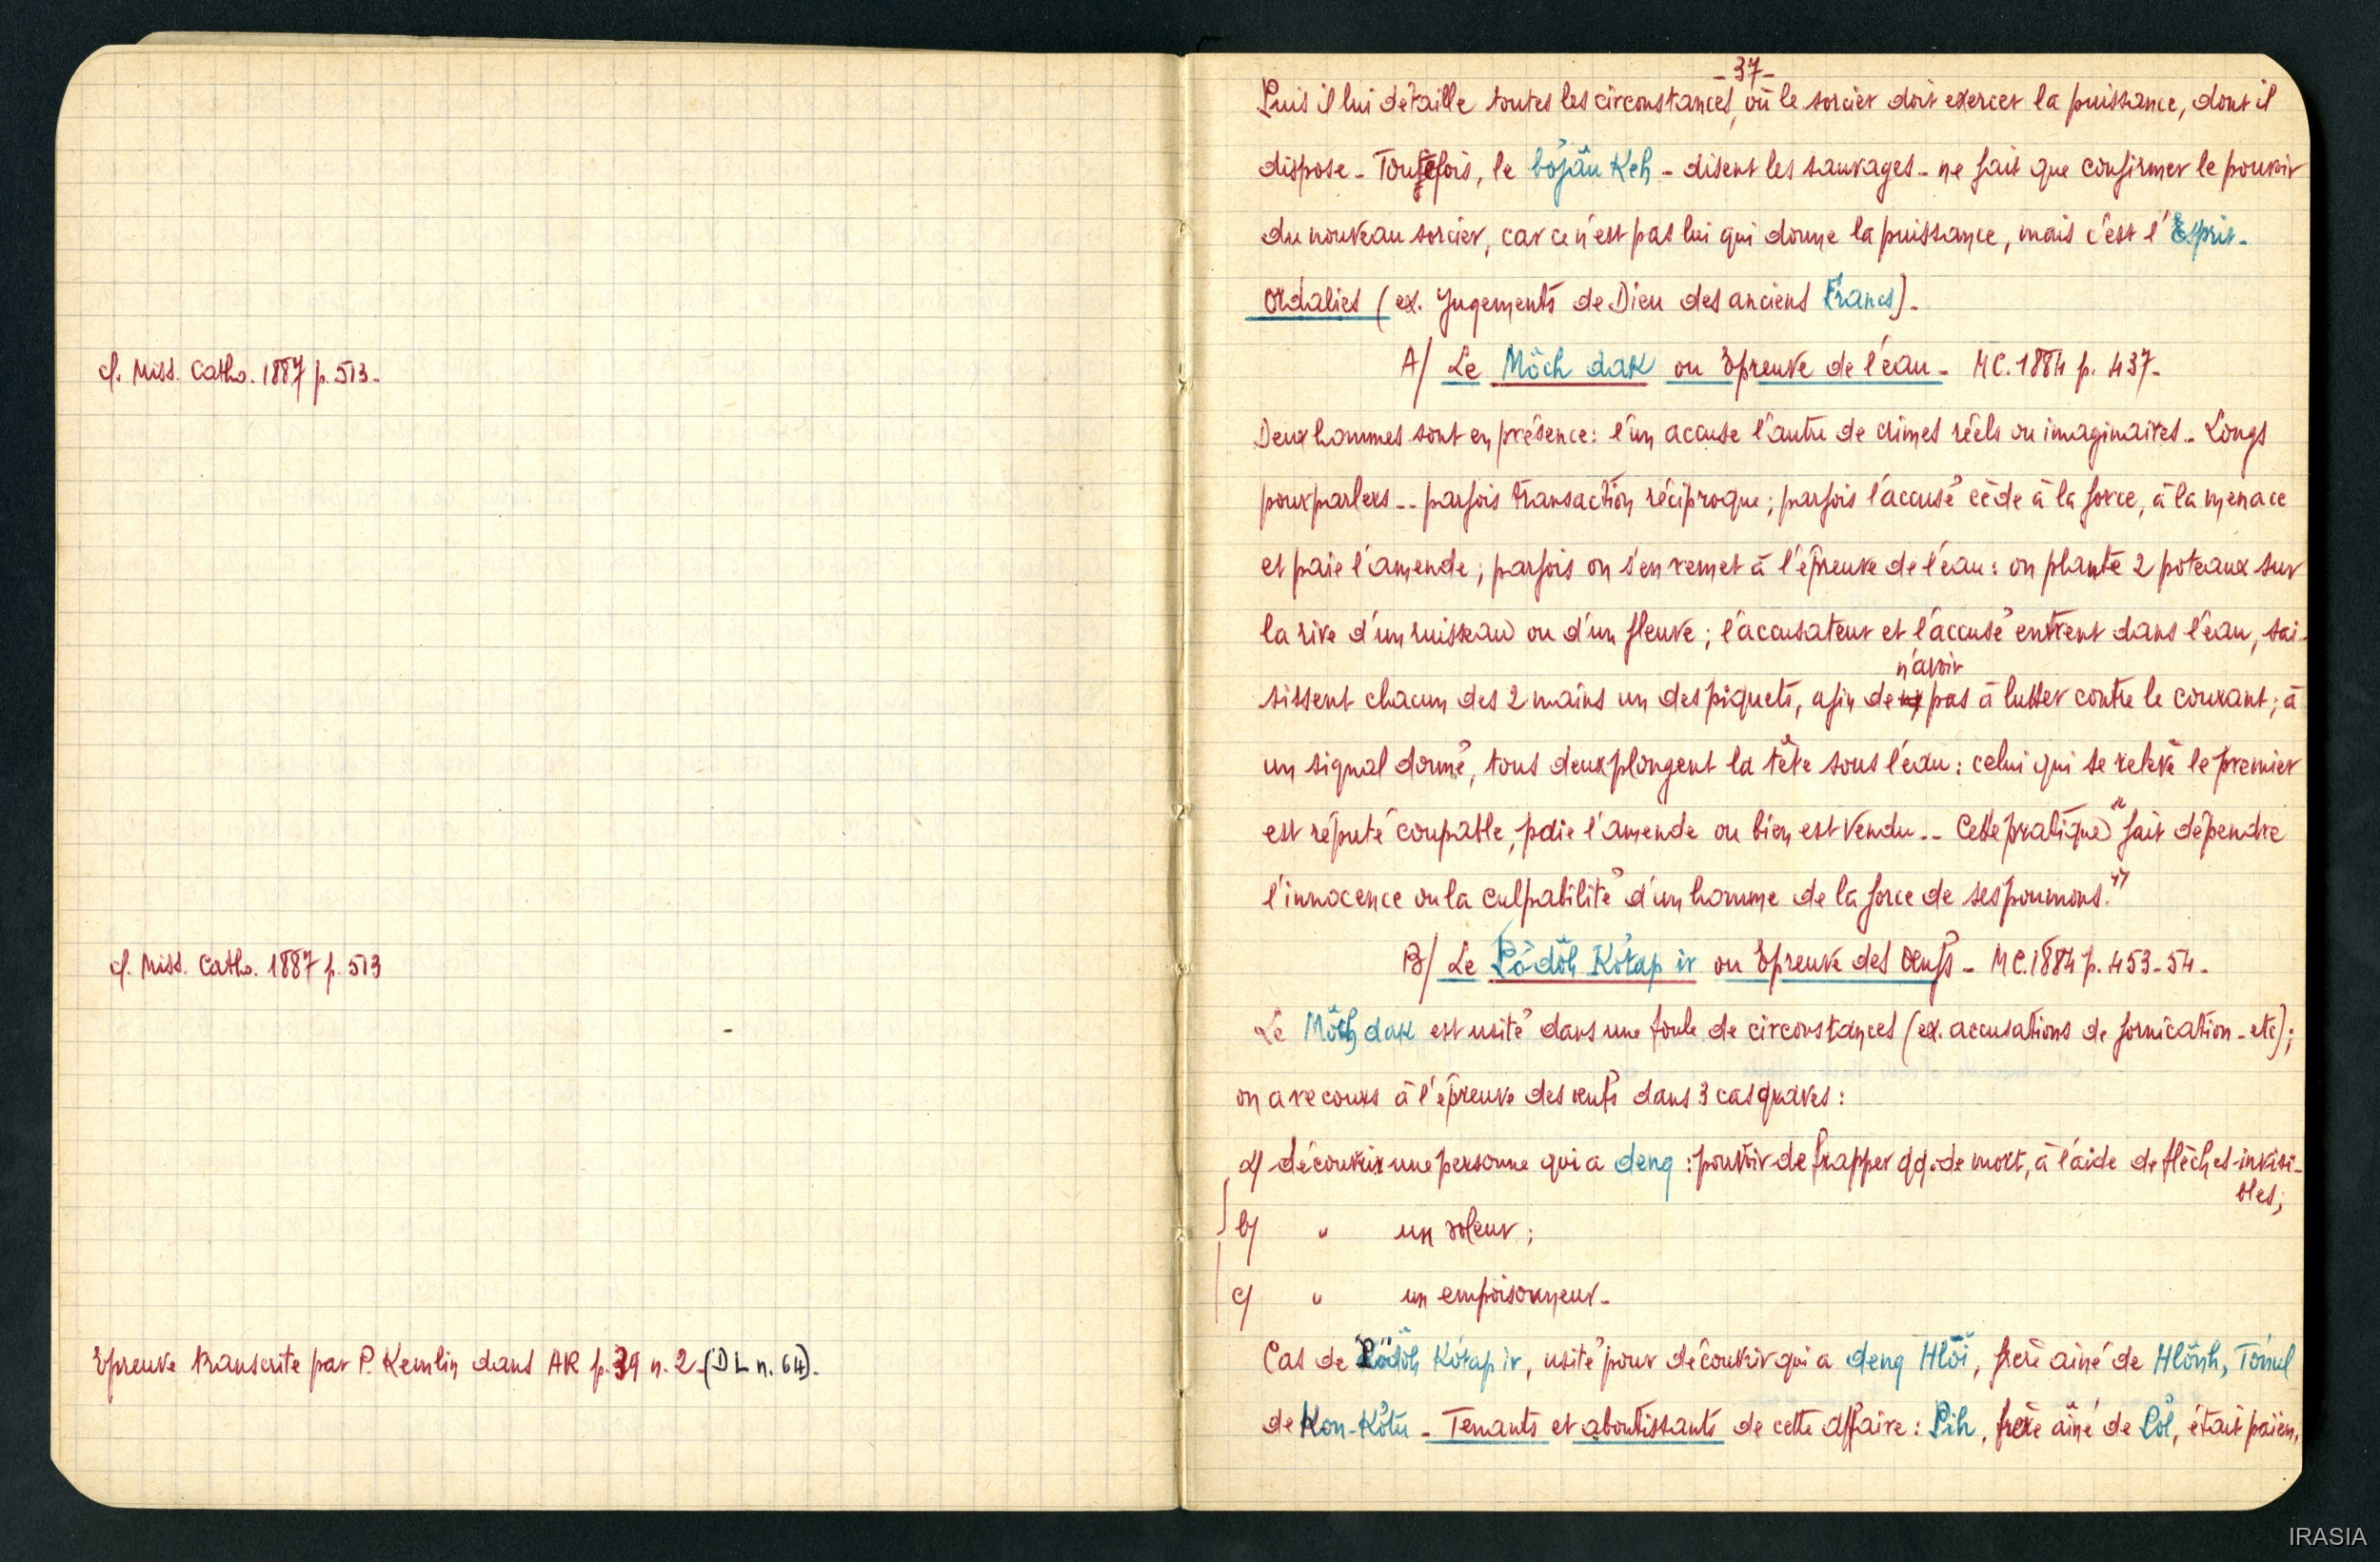 cf. Miss. Catho. 1887 p. 513-
cf. Miss. Catho. 1887 p. 513
Epreuve transcrite par P. Kemlin dans AR p. 39 n. 2 (DL n. 64).
-37-
Puis il lui détaille toutes les circonstances, où le sorcier doit exercer la puissance, dont il
dispose - Toutefois, le bơjâu Keh - disent les sauvages - ne fait que confirmer le pouvoir
du nouveau sorcier, car ce n'est pas lui qui donne la puissance, mais c'est l'Esprit-
Ordalies (ex. Jugements de Dieu des anciens Francs).
A/ Le Mŏch dak ou Epreuve de l'eau - MC. 1884 p. 437-
Deux hommes sont en présence: l'un accuse l'autre de crimes réels ou imaginaires - Longs
pourparlers -- parfois transaction réciproque; parfois l'accusé cède à la force, à la menace
et paie l'amende; parfois on s'en remet à l'épreuve de l'eau: on plante 2 poteaux sur
la rive d'un ruisseau ou d'un fleuve; l'accusateur et l'accusé entrent dans l'eau, sai-
n'avoir
sissent chacun des 2 mains un des piquets, afin de pas à lutter contre le courant; à
un signal donné, tous deux plongent la tête sous l'eau: celui qui se relève le premier
est réputé coupable, paie l'amende ou bien est vendu -- Cette pratique "fait dépendre
l'innocence ou la culpabilité d'un homme de la force de ses poumons."
B/ Le Pơdŏh Kơtap ir ou Epreuve des Œufs - MC. 1884 p. 453-54-
Le Mŏch dak est usité dans une foule de circonstances (ex. accusations de fornication - etc);
on a recours à l'épreuve des œufs dans 3 cas graves:
a/ découvrir une personne qui a deng: pouvoir de frapper qq. de mort, à l'aide de flèches invisi-
bles;
b/ " un voleur;
c/ " un empoisonneur-
Cas de Pơdŏh Kơtap ir, usité pour découvrir qui a deng Hlŏi, frère aîné de Hlŏnh, Tơmul
de Kon-Kơtu - Tenants et aboutissants de cette affaire: Pih, frère aîné de Lôl, était païen,
IRASIA